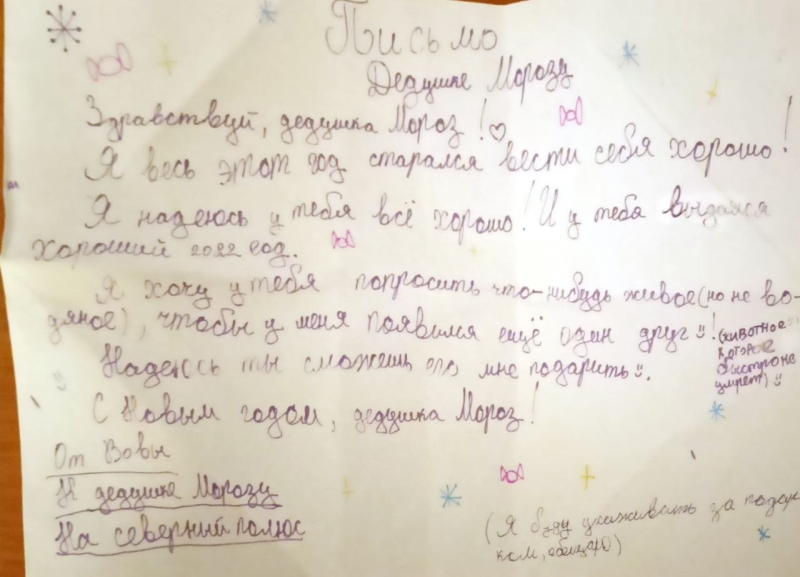 Письмо
Дедушке Морозу
Здравствуй, дедушка Мороз!
Я весь этот год старался вести себя хорошо!
Я надеюсь у тебя всё хорошо! И у тебя выдался
хороший 2022 год.
Я хочу у тебя попросить что-нибудь живое (но не во-
дяное), чтобы у меня появился ещё один друг !
(животное
которое
быстро не
умрет)
Надеюсь ты сможешь его мне подарить .
С Новым годом, дедушка Мороз!
От Вовы
К дедушке Морозу
На северный полюс
(Я буду ухаживать за подар
ком, обещаю)